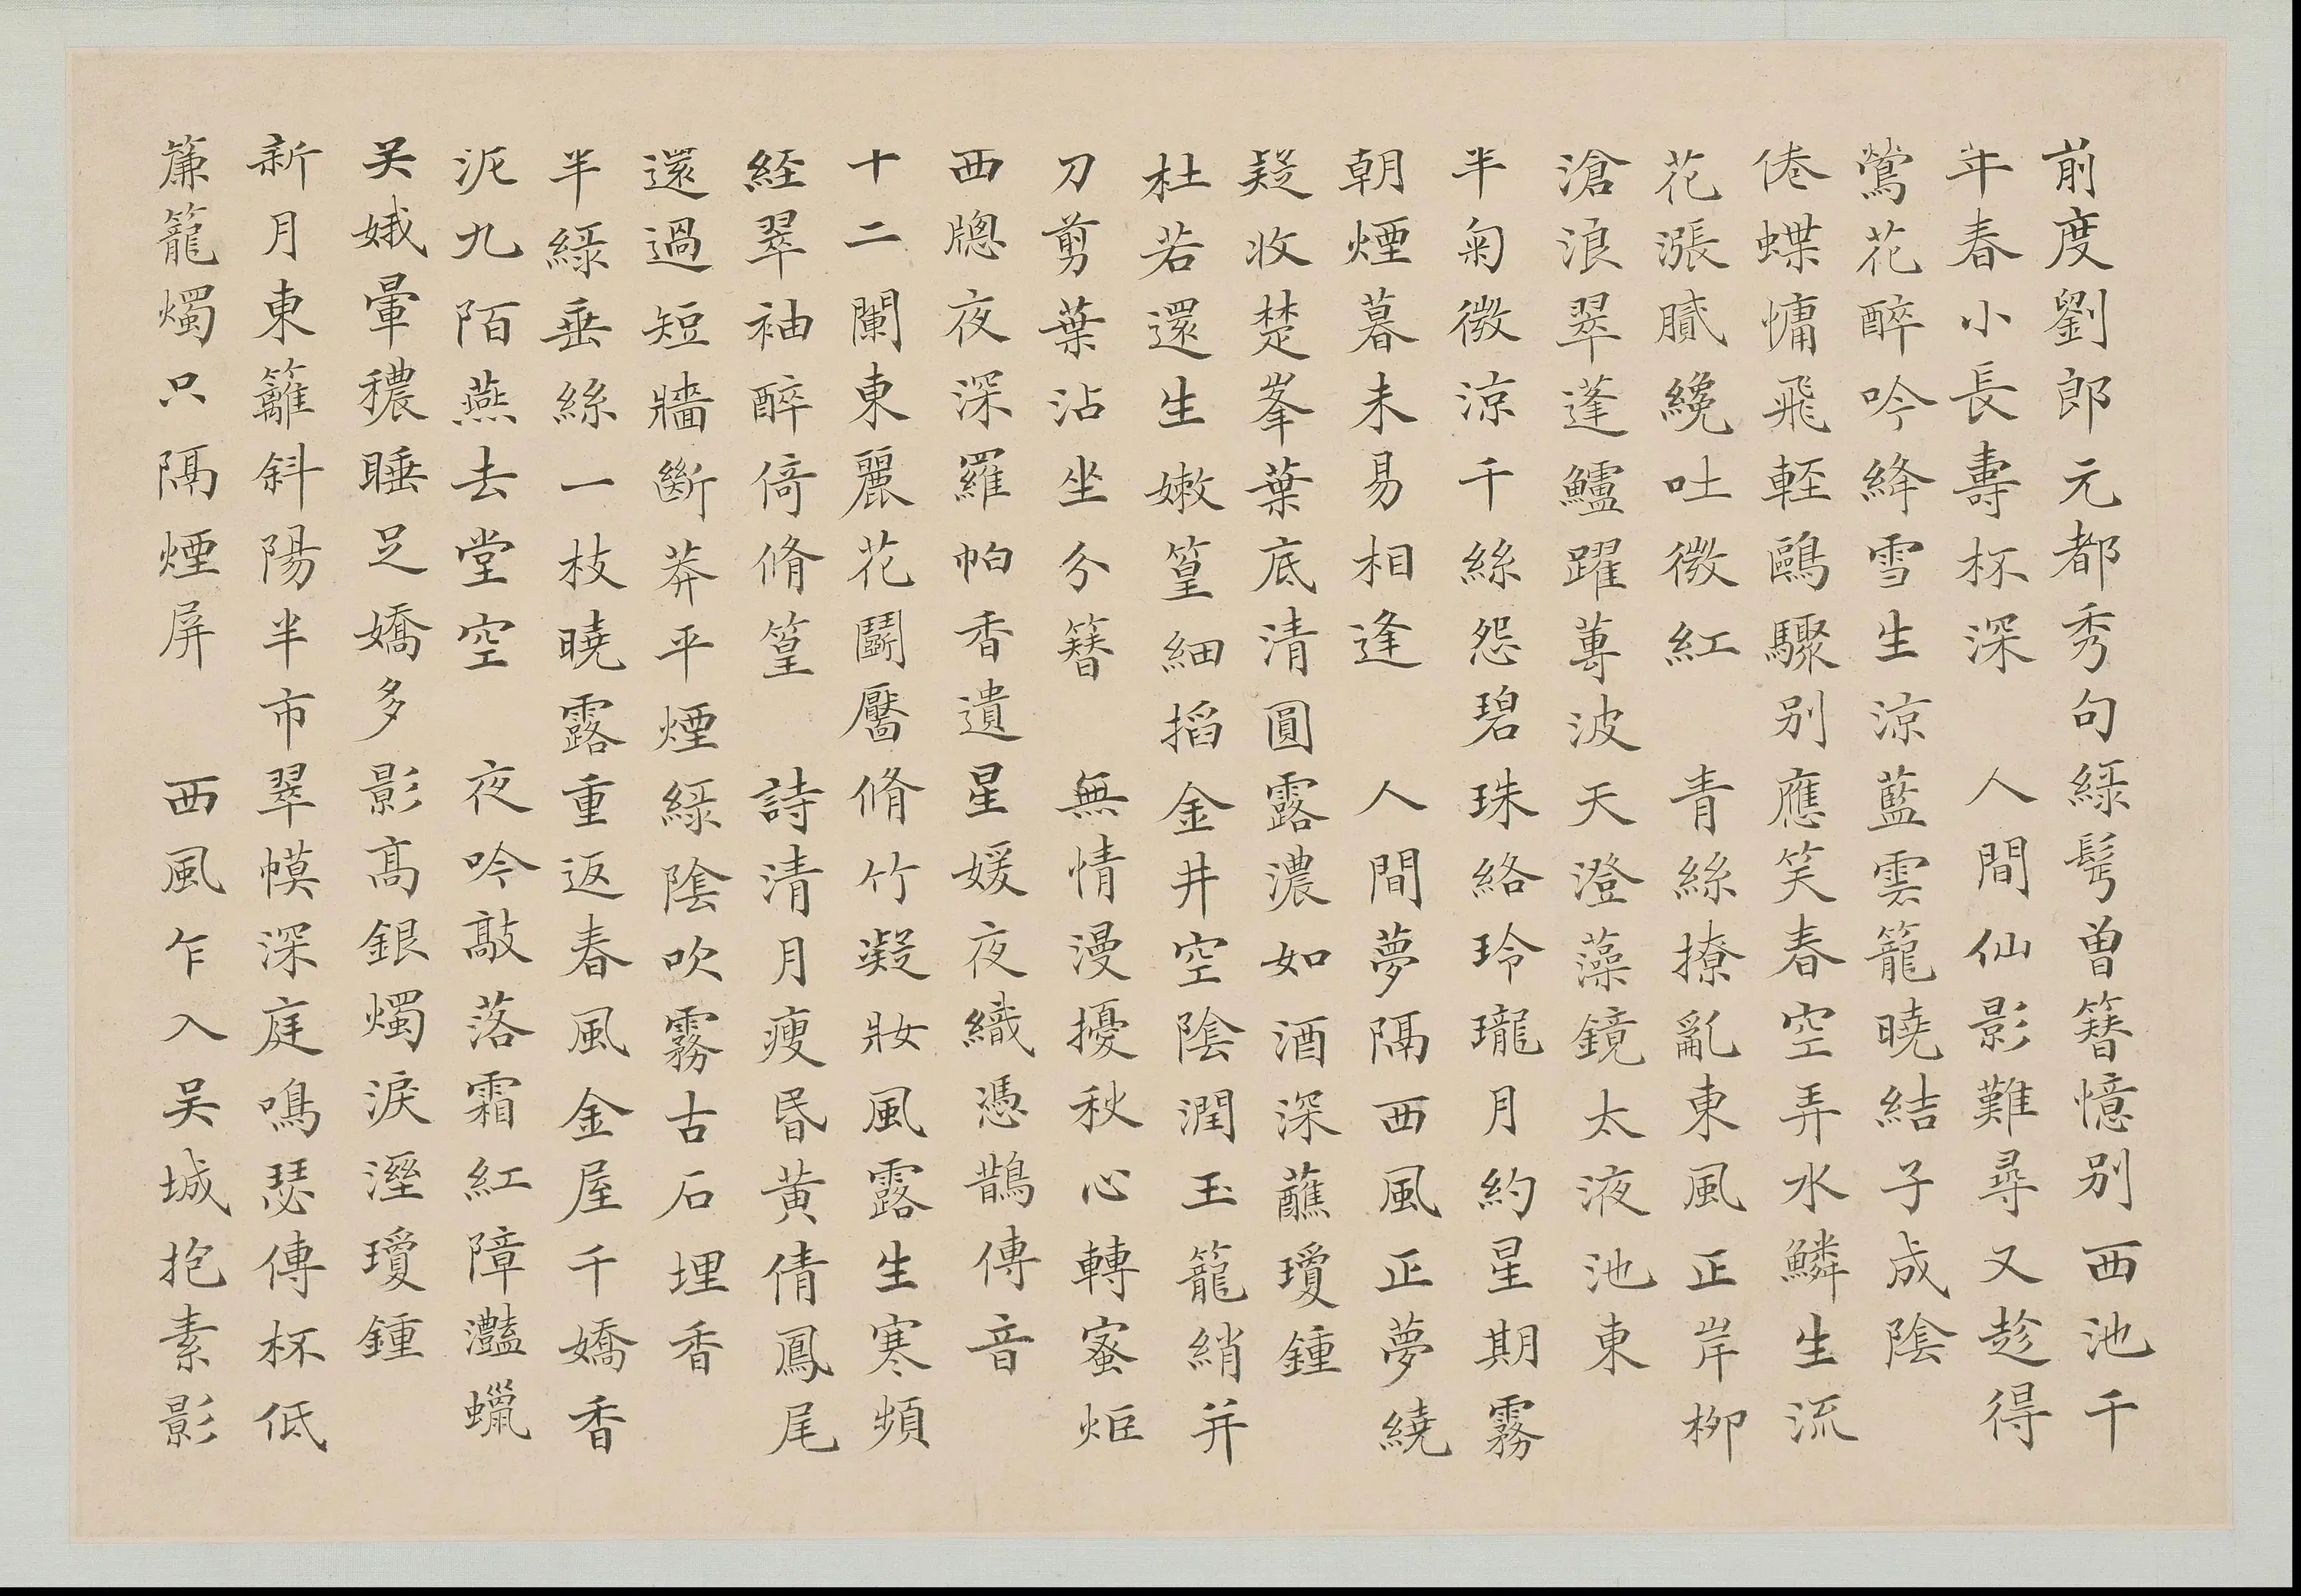 前度劉郎元都秀句綠髩曾簪憶別西池千
年春小長壽杯深　人間仙影難尋又趁得
鶯花醉吟絳雪生涼藍雲籠曉結子成陰
倦蝶慵飛輕鷗驟別應笑春空弄水鱗生流
花漲膩纔吐微紅　青絲撩亂東風正岸柳
滄浪翠蓬鱸躍蓴波天澄藻鏡太液池東
半菊微涼千絲怨碧珠絡玲瓏月約星期霧
朝煙暮未易相逢　人間夢隔西風正夢繞
疑收楚峯葉底清圓露濃如酒深蘸瓊鍾
杜若還生嫩篁細搯金井空陰潤玉籠綃并
刀剪葉沾坐分簪　無情漫擾秋心轉蜜炬
西牕夜深羅帕香遺星媛夜織憑鵲傳音
十二闌東麗花鬭靨脩竹凝妝風露生寒頻
經翠袖醉倚脩篁　詩清月瘦昏黃倩鳳尾
還過短牆斷莽平煙綠陰吹霧古石埋香
半綠垂絲一枝曉露重返春風金屋千嬌香
泥九陌燕去堂空　夜吟敲落霜紅障灩蠟
吴娥暈穠睡足嬌多影高銀燭淚溼瓊鍾
新月東籬斜陽半市翠幙深庭鳴瑟傳杯低
簾籠燭只隔煙屏　西風乍入吴城抱素影